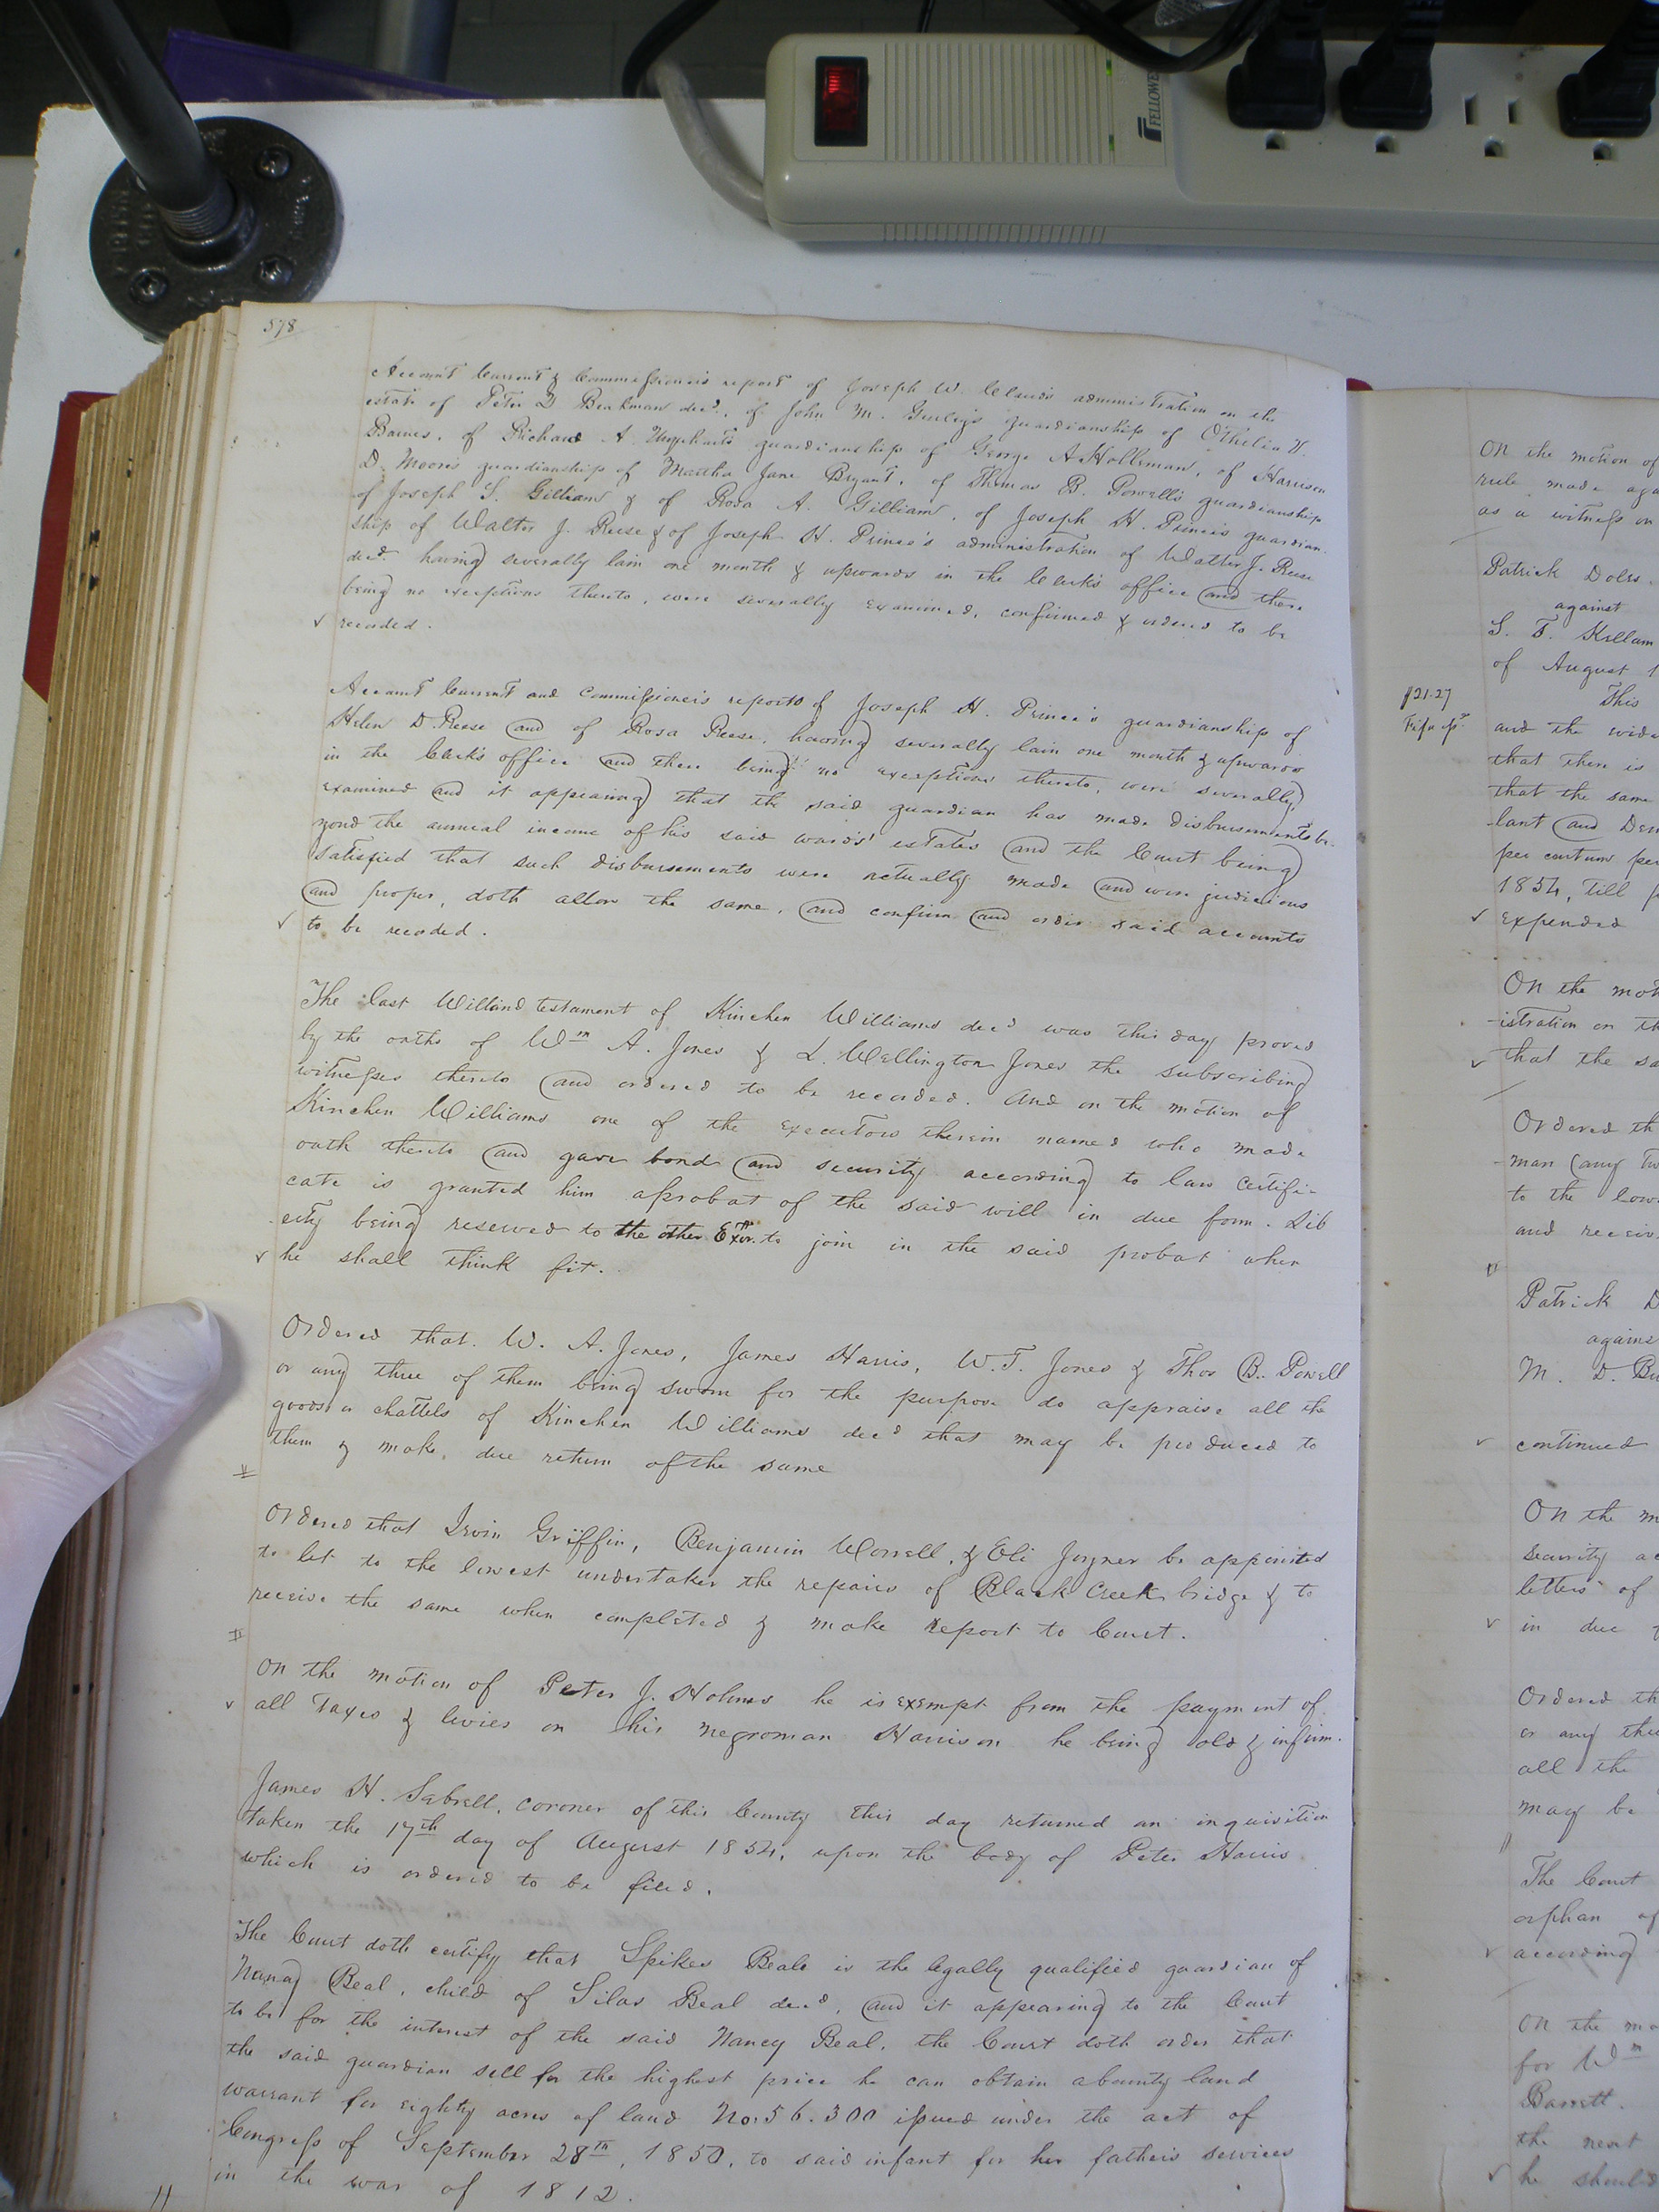 FELLOWE
578
Account Current & Commissioner's report of Joseph W. Claud's administration on the
estate of Peter D Beakman decd, of John M. Gurley's guardianship of Othelia V.
Barnes, of Richard A. Urquhart's guardianship of George A Holleman, of Harrison
D. Moore's guardianship of Martha Jane Bryant, of Thomas B. Powell's guardianship
of Joseph S. Gilliam & of Rosa A. Gilliam, of Joseph H. Prince's guardian-
ship of Walter J. Reese & of Joseph H. Prince's administration of Walter J. Reese
decd having severally lain one month & upwards in the Clerk's office and there
being no exceptions thereto, were severally examined, confirmed & ordered to be
✓ recorded.
Account Current and Commissioner's reports of Joseph H. Prince's guardianship of
Helen D. Reese and of Rosa Reese, having severally lain one month & upwards
in the Clerk's office and there being no exceptions thereto, were severally
examined and it appearing that the said guardian has made disbursements be-
yond the annual income of his said wards' estates and the Court being
satisfied that such disbursements were actually made and were judicious
and proper, doth allow the same, and confirm and order said accounts
✓ to be recorded.
The last Will and testament of Kinchen Williams decd was this day proved
by the oaths of Wm A. Jones & L. Wellington Jones the subscribing
witnesses thereto and ordered to be recorded. And on the motion of
Kinchen Williams one of the executors therein named who made
oath thereto and gave bond and security according to law certifi-
cate is granted him a probat of the said will in due form. Lib
erty being reserved to the other Exor. to join in the said probat when
✓ he shall think fit.
Ordered that W. A. Jones, James Harris, W. T. Jones & Thos B. Powell
or any three of them being sworn for the purpose do appraise all the
goods & chattels of Kinchen Williams decd that may be produced to
them & make due return of the same
Ordered that Irvin Griffin, Benjamin Worrell, & Eli Joyner be appointed
to let to the lowest undertaker the repairs of Black Creek bridge & to
receive the same when completed & make report to Court.
On the motion of Peter J. Holmes he is exempt from the payment of
✓ all Taxes & levies on his negroman Harrison he being old & infirm.
James H. Sebrell, coroner of this County this day returned an inquisition
taken the 17th day of August 1854, upon the body of Peter Harris
which is ordered to be filed.
The Court doth certify that Spikes Beale is the legally qualified guardian of
Nancy Beal, child of Silas Beal decd, and it appearing to the Court
to be for the interest of the said Nancy Beal, the Court doth order that
the said guardian sell for the highest price he can obtain a bounty land
warrant for eighty acres of land No. 56.300 issued under the act of
Congress of September 28th, 1850, to said infant for her father's services
in the war of 1812.
On the motion of
rule made aga
as a witness on
Patrick Doles
against
S. T. Kellam
of August 1
This
$21.27
and the wide
that there is
that the same
lant and Den
per centum per
1854, till p
✓ expended
On the mot
istration on th
✓ that the sa
Ordered th
man (any tw
to the low
and receiv
Patrick D
agains
M. D. Bu
✓ continued
On the m
security ac
letters of
✓ in due f
Ordered th
or any thr
all the
may be
The Court
orphan of
✓ according
On the mo
for Wm
Barrett.
the next
✓ he should